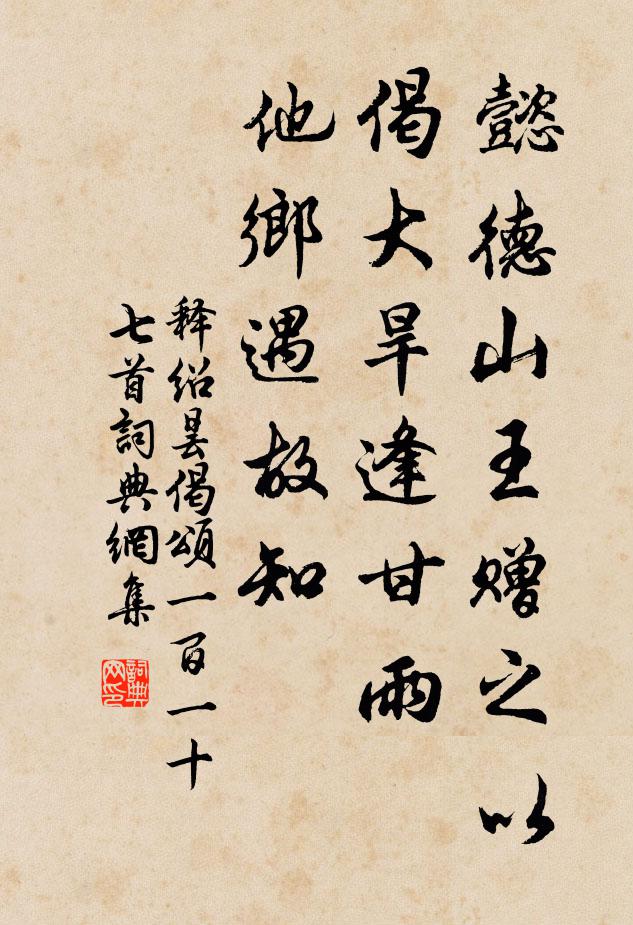 懿德山王赠之以
偈大旱逢甘雨
他鄉遇故知
释绍昙偈頌一百一十
七首詞典網集
詞典网印